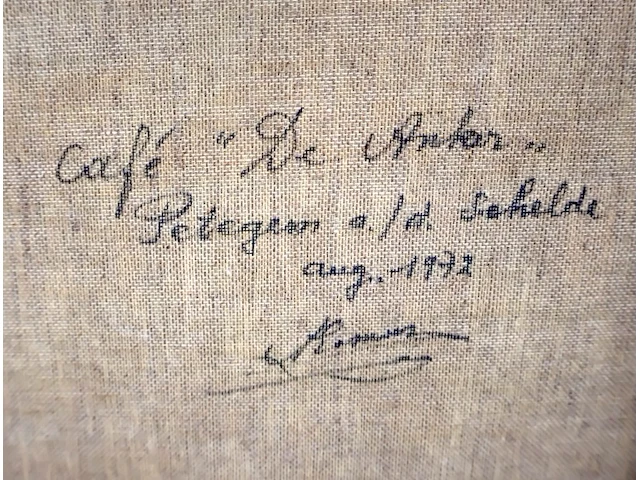 café "De Anker"
Petegem a./d. Schelde
aug. 1972